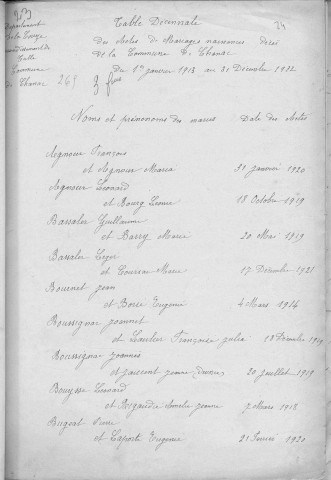 Table Décennale
24
Département
de la Corrèze
Arrondissement de
Tulle
Commune
de Chanac
269
3
Des Actes de Mariages naissances décès
de la Commune de Chanac
Du 1er janvier 1913 au 31 Décembre 1922
Noms et prénoms des mariés Date des Actes
Agnoux François
et Agnoux Maria 31 janvier 1920
Agnoux Léonard
et Bourg Leonie 18 Octobre 1919
Bassaler Guillaume
et Barry Marie 20 Mai 1919
Bassaler Léger
et Marie 17 Décembre 1921
Bouenet jean
et Borie Eugénie 4 Mars 1914
Boussignac jeannet
et Françoise julia 18 Décembre 1919
Boussignac joannés
et jeanne 20 juillet 1919
Bouysse Léonard
et Amélie jeanne 7 Mars 1918
Bugeat Pierre
et Laporte Eugénie 21 Février 1920